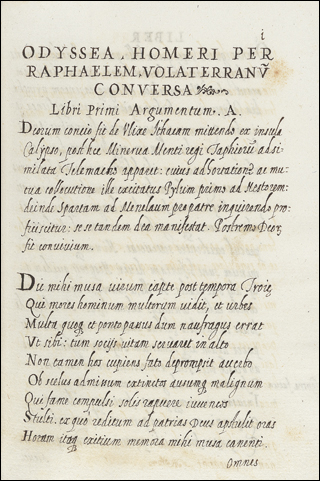 i
ODYSSEA. HOMERI PER
RAPHAELEM. VOLATERRANṼ
CONVERSA
Libri Primi Argumentum. A.
Deorum concio fit de Vlixe Ithacam mittendo ex insula
Calypso, post hæc Minerua Menti regi Taphiorũ adsi-
milata Telemacho apparet: cuius adhortatione ac mu-
tua collocutione ille excitatus Pylum primo ad Nestorem
deinde Spartam ad Menelaum pro patre inquirendo pro-
fiiscitur: se se tandem dea manifestat. Postremo Deorũ
fit convivium.
Dic mihi musa uirum captę post tempora Troię
Qui mores hominum multorum uidit, et urbes
Multa quoq et ponto passus dum naufragus errat
Vt sibi: tum socijs uitam seruaret in alto
Non tamen hos cupiens fato deprompsit acerbo
Ob scelus admissum extinctos ausumq malignum
Qui fame compulsi solis rapuere iuuencos
Stulti. ex quo reditum ad patrias Deus abstulit oras
Horum itaq exitium memora mihi musa canenti.
Omnes